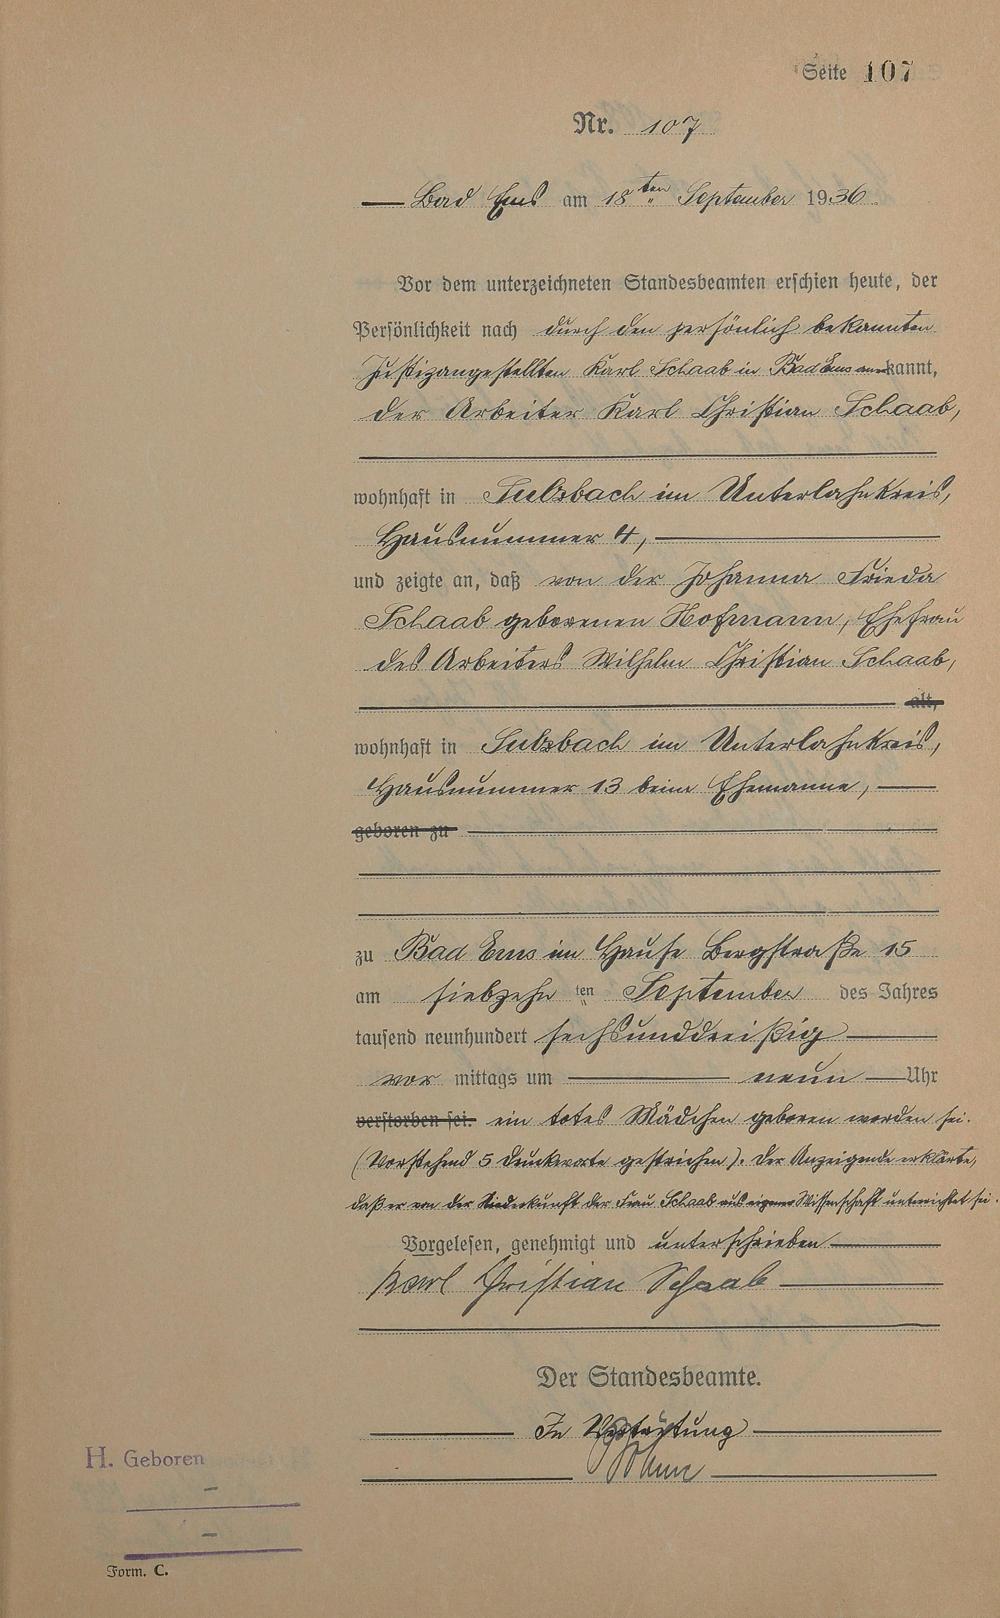 Seite 107
Nr. 107
Bad Ems am 18ten September 1936
Vor dem unterzeichneten Standesbeamten erschien heute, der
Persönlichkeit nach durch den persönlich bekannten
Justizangestellten Karl Schaab in Bad Ems anerkannt,
der Arbeiter Karl Christian Schaab,
wohnhaft in Sulzbach im Unterlahnkreis,
Hausnummer 4,
und zeigte an, daß von der Johanna Frieda
Schaab geborenen Hofmann, Ehefrau
des Arbeiters Wilhelm Christian Schaab,
alt,
wohnhaft in Sulzbach im Unterlahnkreis,
Hausnummer 13 beim Ehemanne,
geboren zu
zu Bad Ems im Hause Bergstraße 15
am siebzehn ten September des Jahres
tausend neunhundert sechsunddreißig
vor mittags um neun Uhr
verstorben sei. ein totes Mädchen geboren worden sei.
(Vorstehend 5 Druckworte gestrichen). Der Anzeigende erklärte,
daß er von der Niederkunft der Frau Schaab aus eigener Wissenschaft unterrichtet sei.
Vorgelesen, genehmigt und unterschrieben
Karl Christian Schaab
Der Standesbeamte.
In Vertretung
H. Geboren
-
-
Form. C.